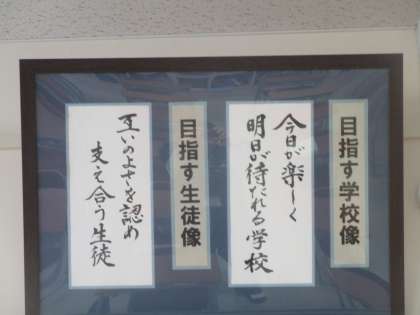 目指す学校像
今日が楽しく
明日が待たれる学校
目指す生徒像
互いのよさを認め
支え合う生徒